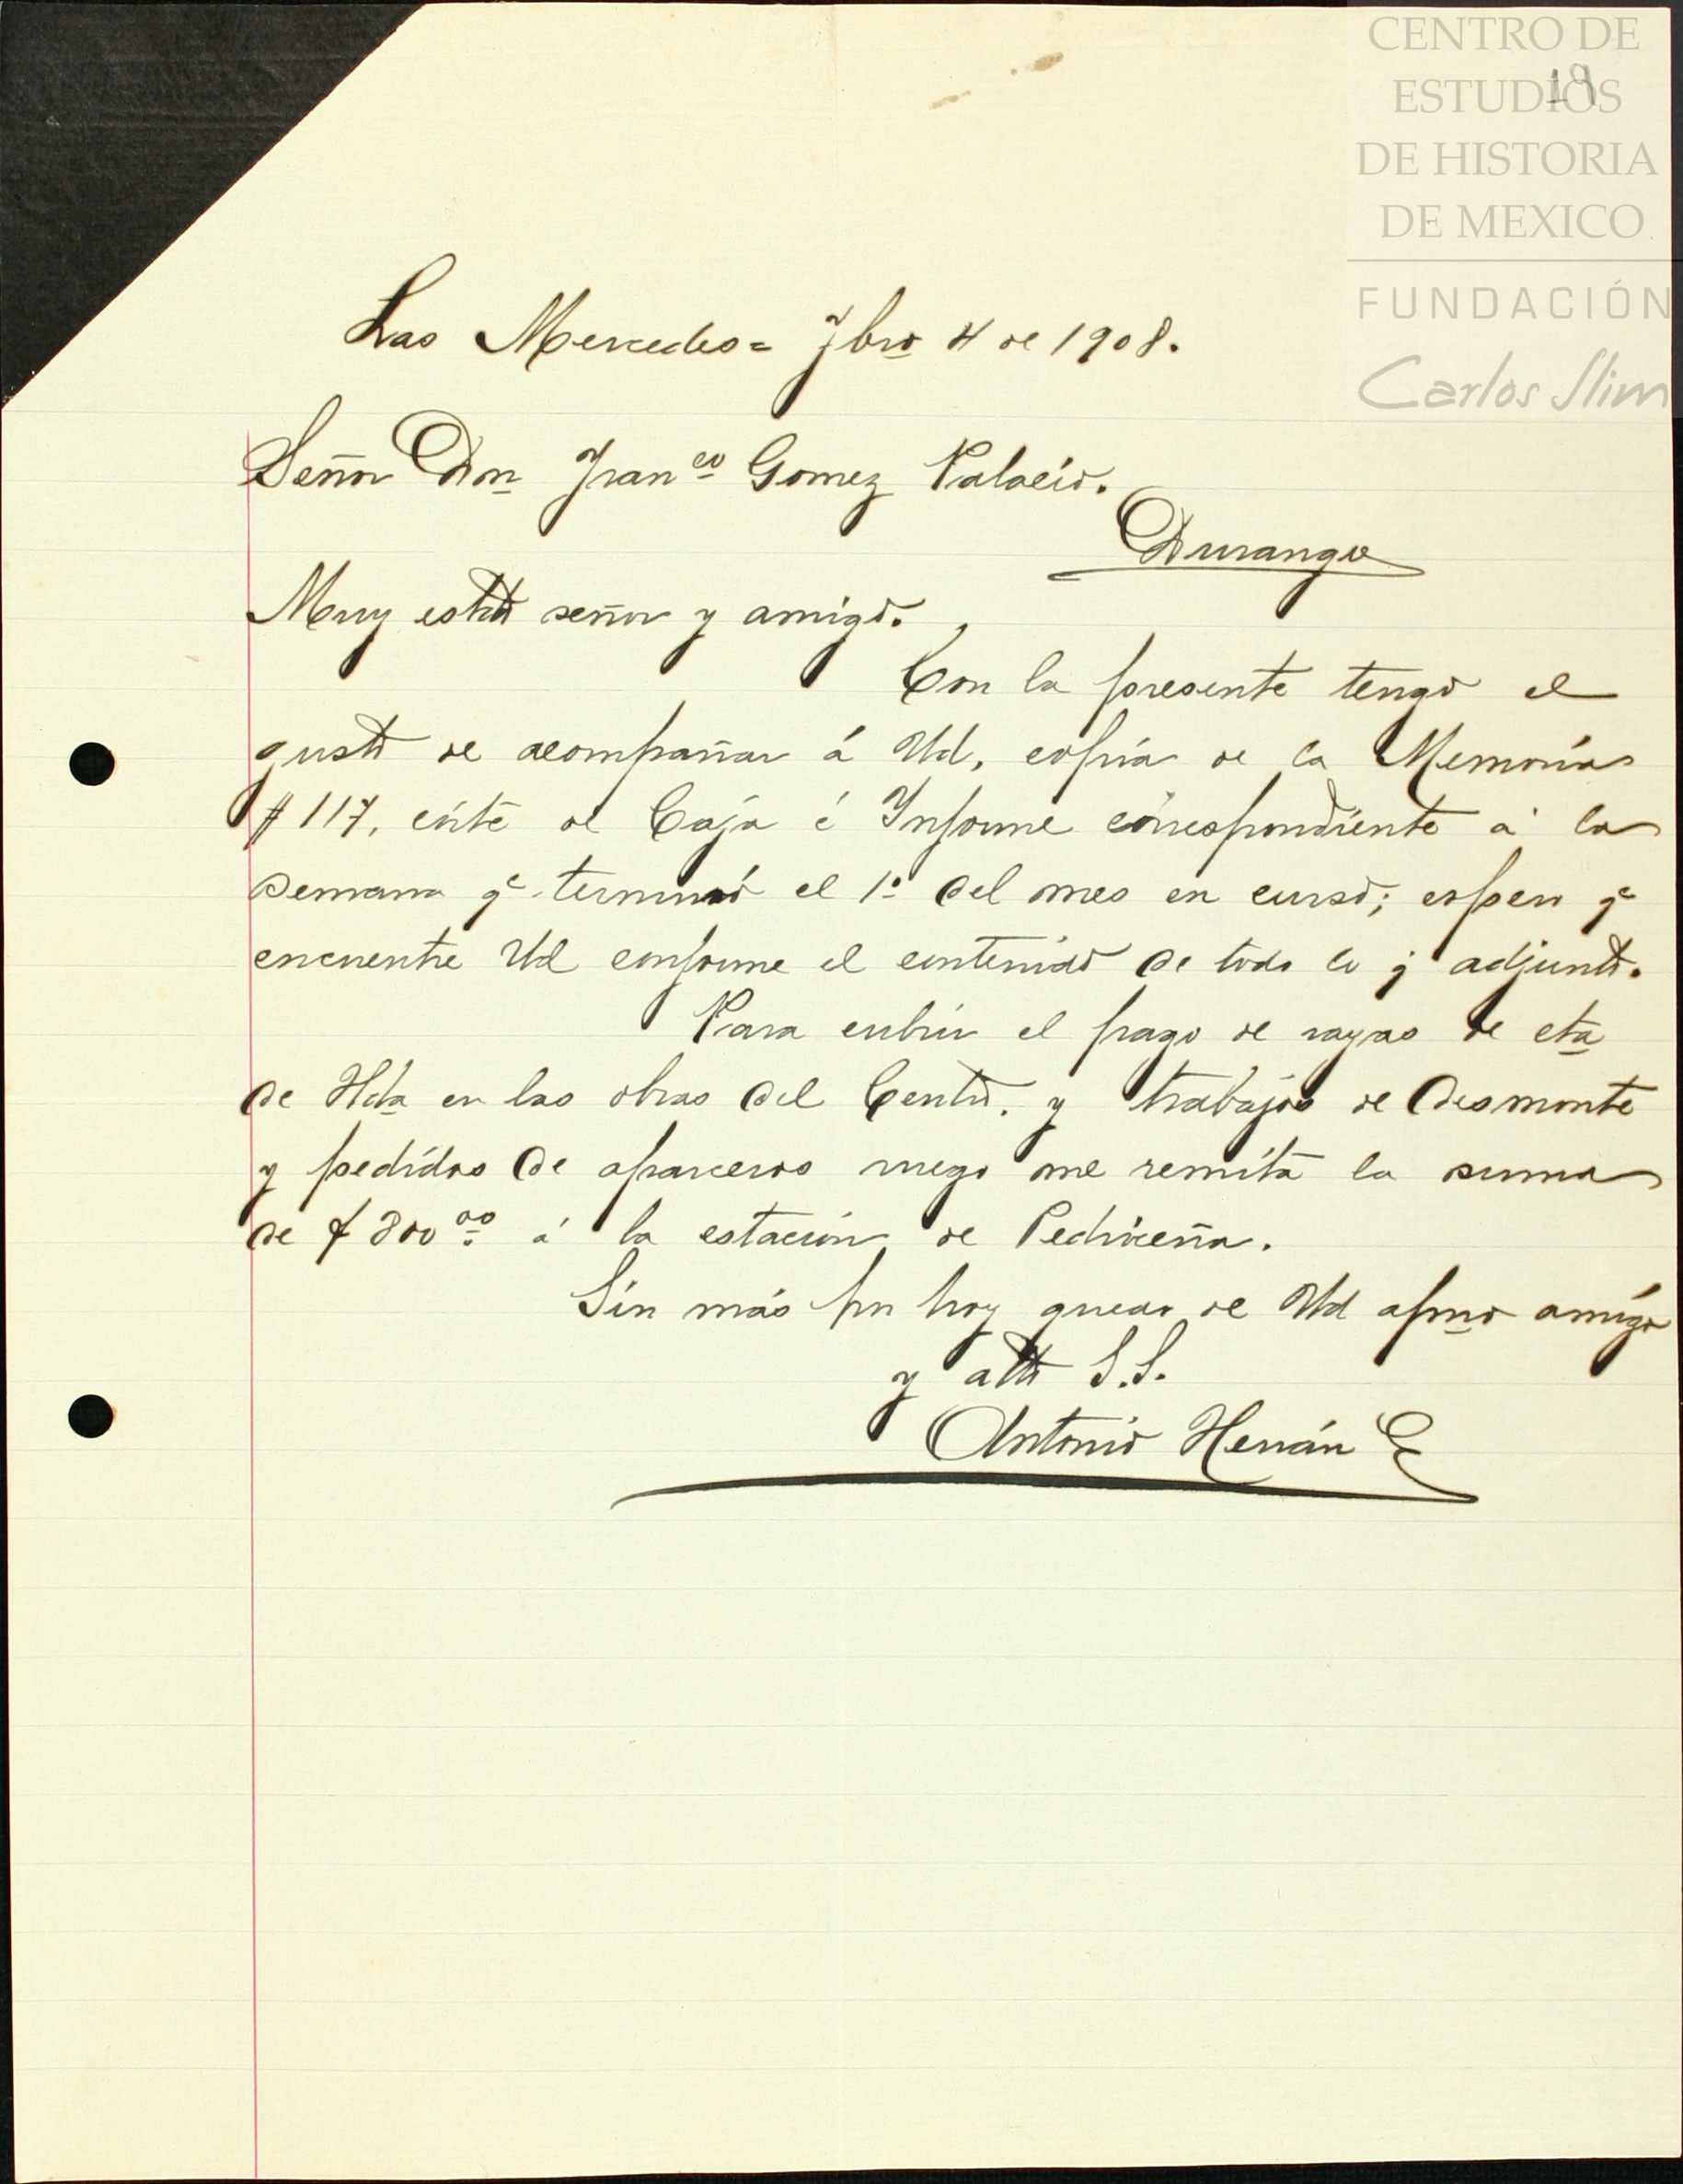 CENTRO DE
ESTUDIOS
DE HISTORIA
DE MEXICO
FUNDACIÓN
Carlos Slim
19
Las Mercedes= 7bro 4 de 1908.
Señor Don Franco Gomez Palacio.
Durango
Muy estdo señor y amigo.
Con la presente tengo el
gusto de acompañar á Ud, copia de la Memoria
# 117, cnte de Caja é Informe correspondiente á la
semana qe terminó el 1º del mes en curso; espero qe
encuentre Ud conforme el contenido de todo lo q adjunto.
Para cubrir el pago de rayas de eta
de Hda en las obras del Centro, y trabajos de desmonte
y pedidos de aparceros ruego me remita la suma
de $ 800 oo á la estación de Pedriceña.
Sin más pr hoy quedo de Ud afmo amigo
y atto S.S.
Antonio Herrán E